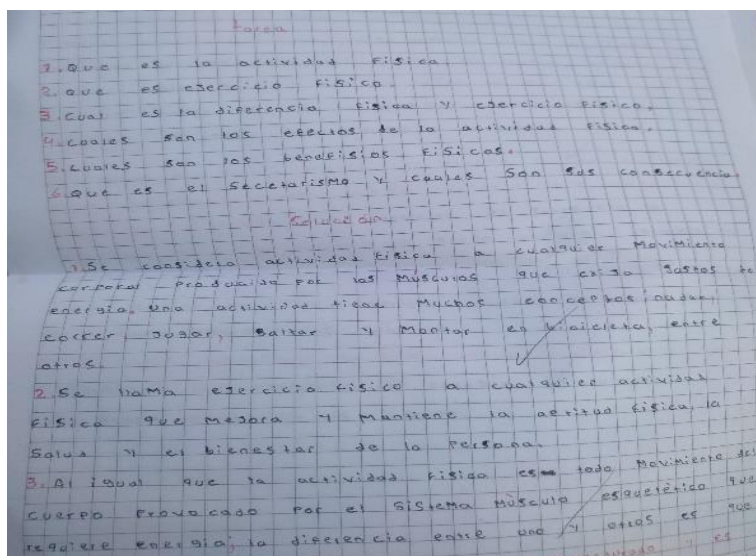 Tarea
1. Que es la actividad Física
2. que es ejercicio Físico.
3. Cual es la diferencia, Física y ejercicio Físico.
4. cuales son los efectos de la actividad Física.
5. cuales son los beneficios Físicos.
6. que es el Secetarismo y cuales son sus consecuencia
Solución
1. Se considera actividad Física a cualquier Movimiento
corporal Producida Por los Músculos que exija gastos de
energia. Una actividad tiene Muchos conceptos, nadar,
correr, Jugar, Saltar y Montar en bicicleta, entre
otros.
2. Se llama ejercicio Físico a cualquier actividad
Física que mejora y mantiene la aptitud Física, la
Salud y el bienestar de la Persona.
3. Al igual que la actividad Física es todo Movimiento del
cuerpo Provocado Por el Sistema Músculo esquelético que
requiere energia, la diferencia entre uno y otros es que
y es